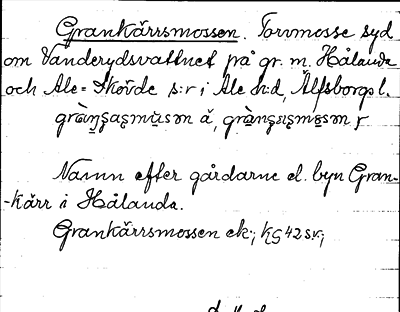 Grankärrsmossen. Torvmosse syd
om Vanderydsvattnet på gr. m. Hålanda
och Ale-Skövde s:r i Ale h:d, Älfsborgs l.
Namn efter gårdarne el. byn Gran-
-kärr i Hålanda.
Grankärrsmossen ek.; KG 42 s.v.;